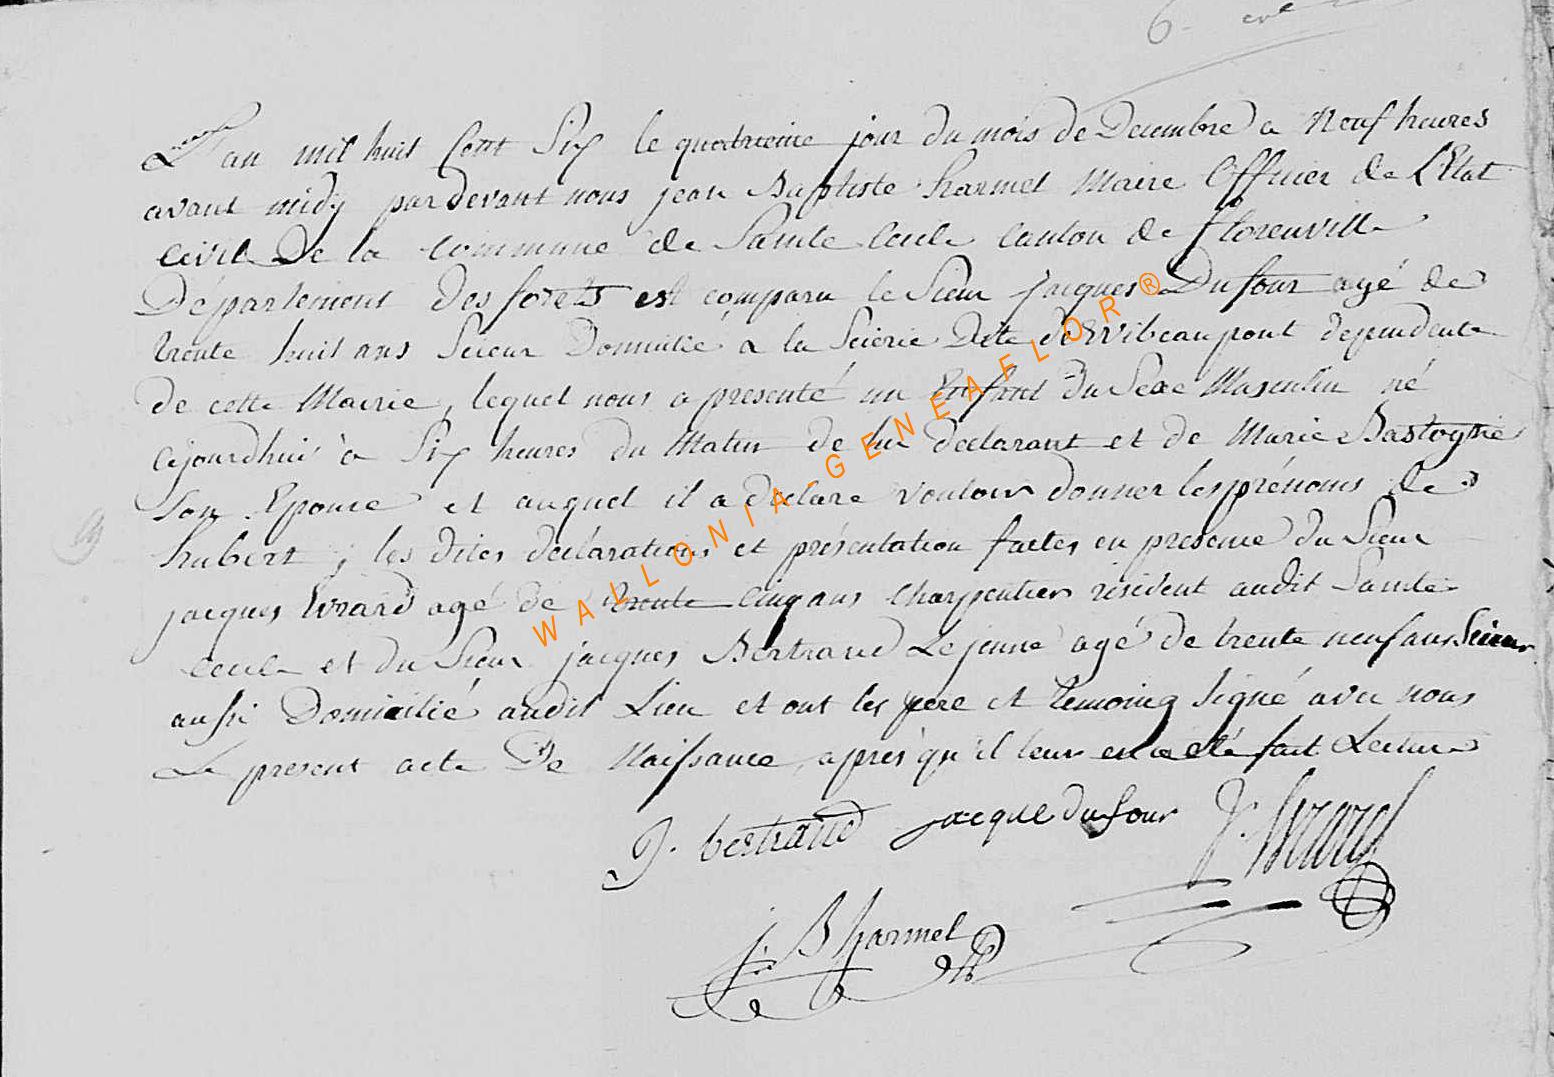 L'an mil huit Cent Six le quatrieme jour du mois de Decembre a Neuf heures
avant midy pardevant nous jean Baptiste harmel Maire Officier de L'Etat
Civil De la Commune de Sainte Cecile Canton de florenville
Département des forets est comparu le Sieur jacques Dufour agé de
trente huit ans Scieur Domicilié a la Scierie Dite de Wibeaupont dependente
de cette Mairie, lequel nous a presenté un Enfant du Sexe Masculin né
cejourdhui à Six heures du Matin de lui declarant et de Marie Bastogne
Son Epouse et auquel il a declare vouloir donner les prénoms de
hubert ; les dites declarations et présentation faites en presence du Sieur
jacques Evrard agé de trente Cinq ans Charpentier résident audit Sainte
Cecile et du Sieur jacques Bertrand Lejeune agé de trente neuf ans Scieur
aussi Domicilié audit Lieu et ont les pere et temoins Signé avec nous
Le present acte De Naissance, après qu'il leur en a eté fait Lecture
J. bertrand jacque dufour J. Evrard
j. B harmel
WALLONIA-GENEAFLOR®